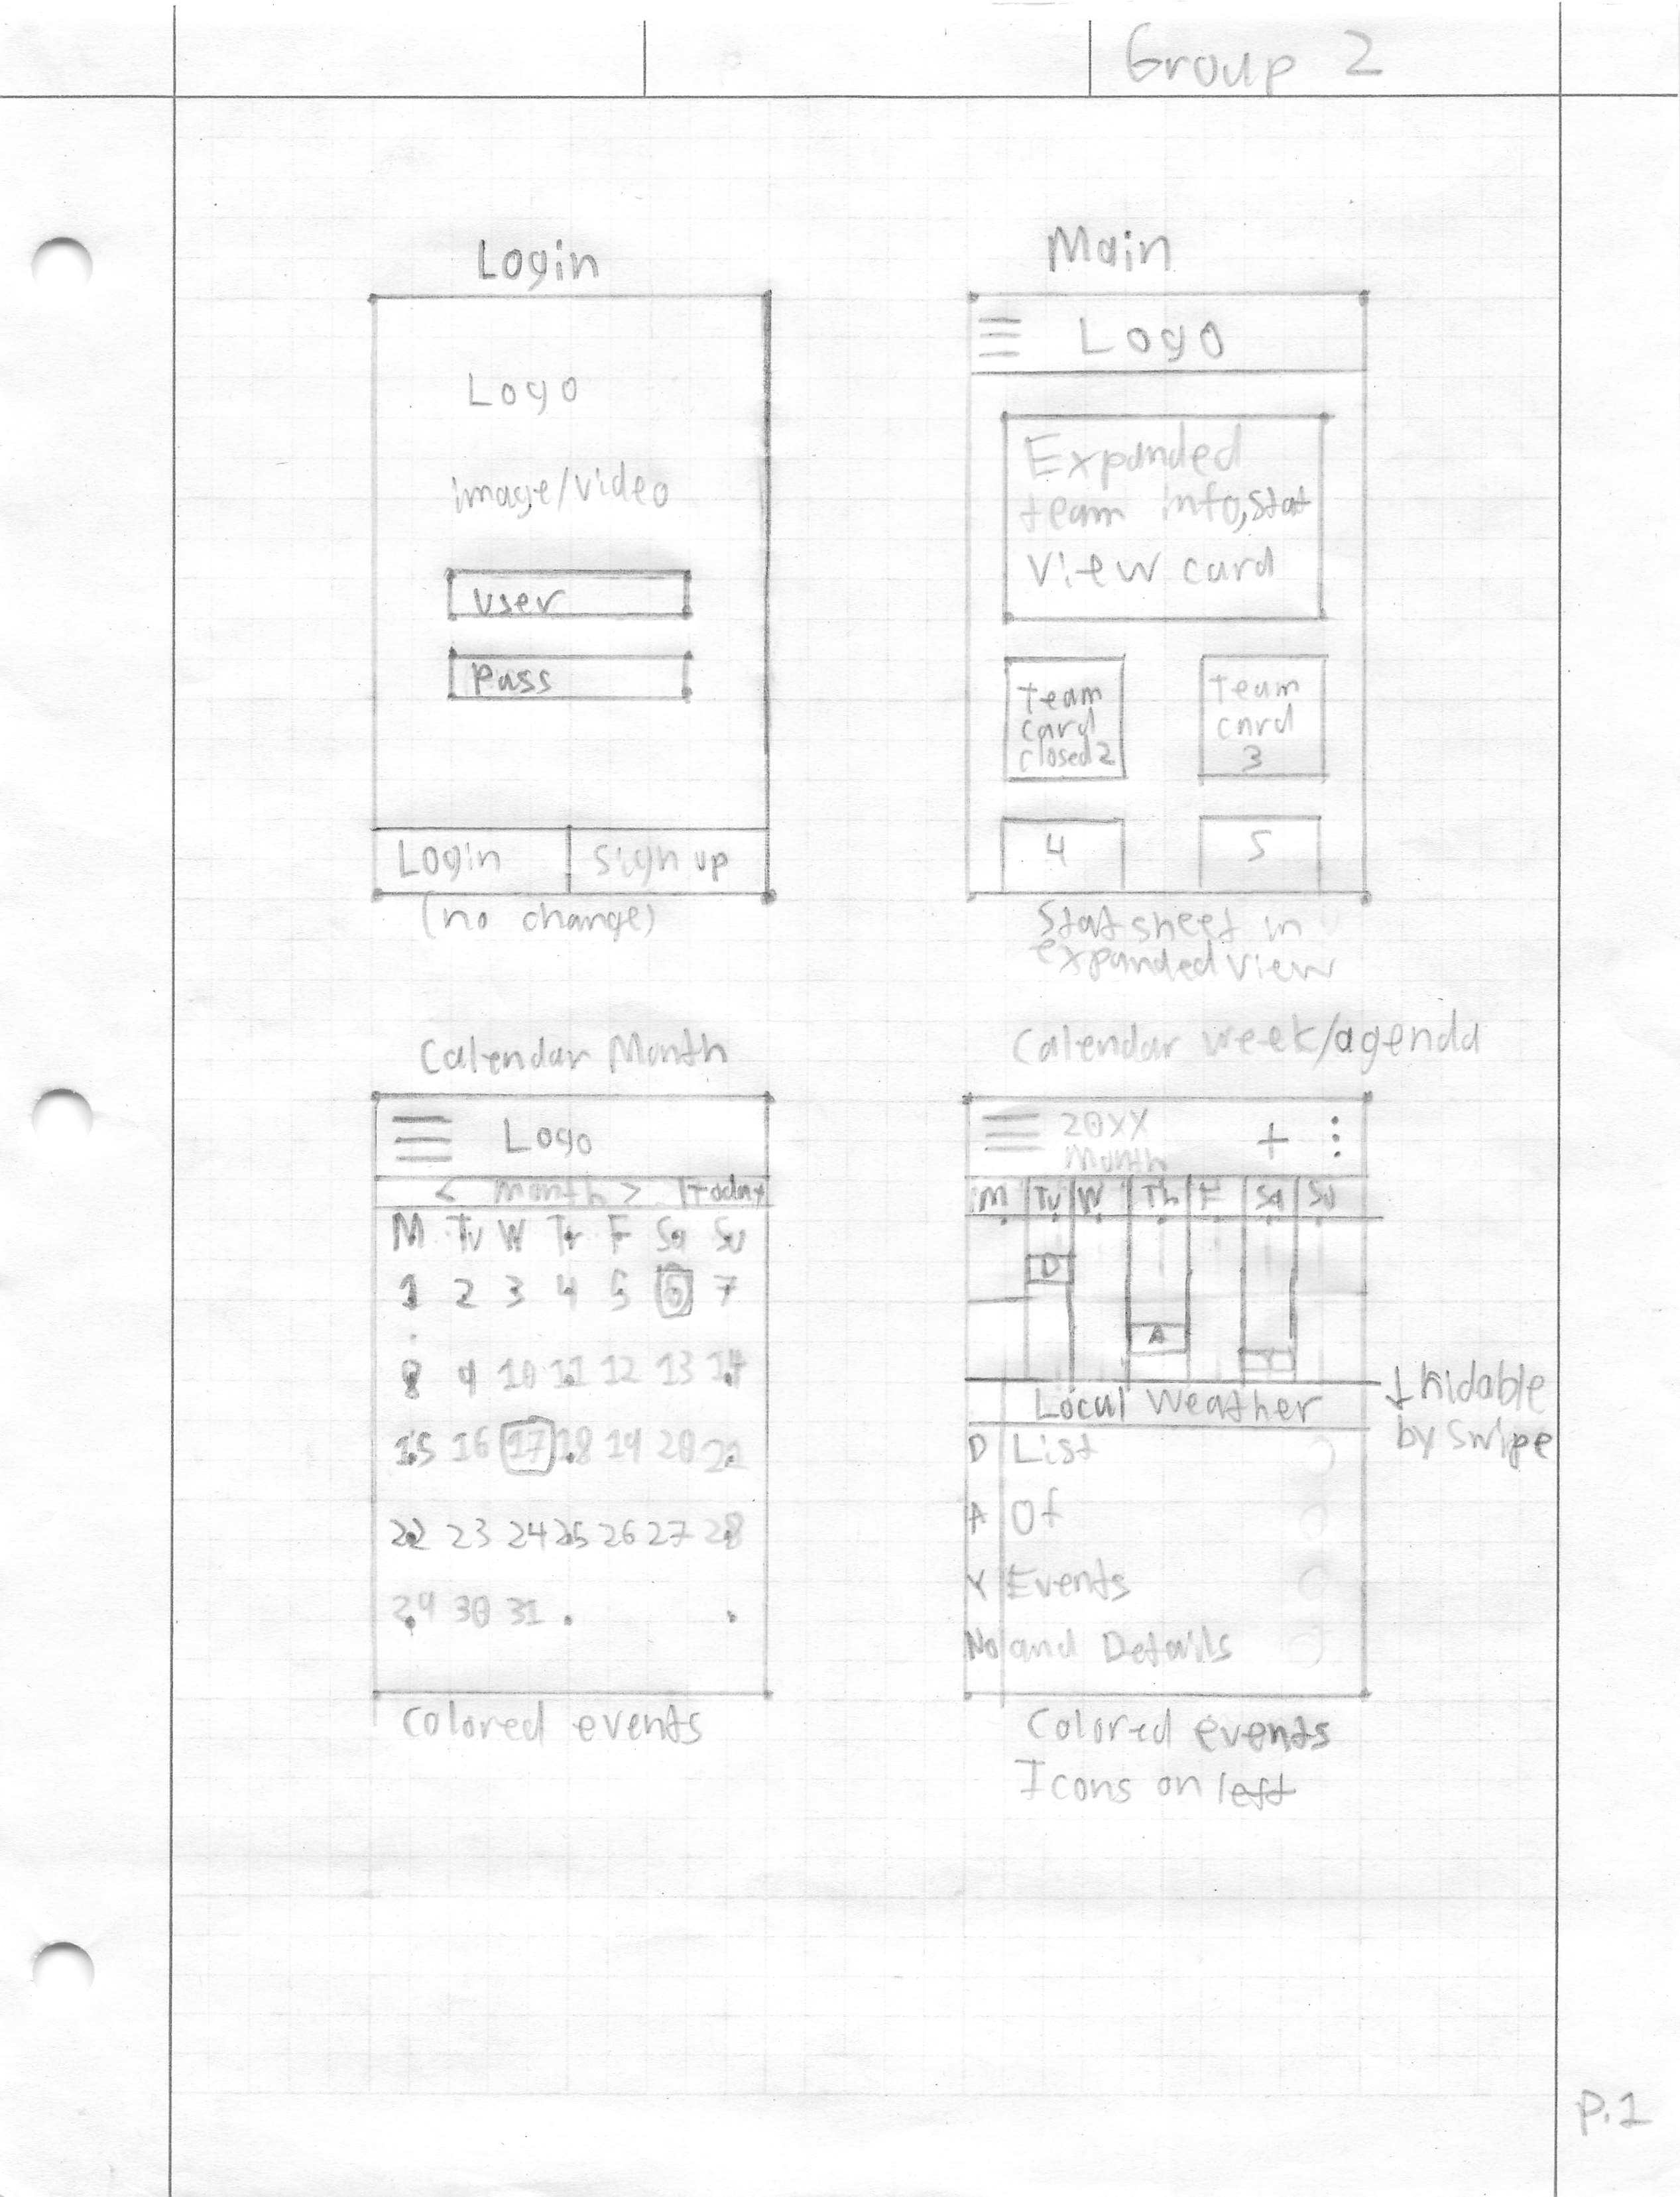 Group 2
Login
Logo
image/video
User
Pass
Login
Sign up
(no change)
Main
Logo
Expanded
team info,stat
View card
team
card
closed 2
team
card
3
4
5
Stat sheet in
expanded view
Calendar Month
Logo
< Month > Today
M Tu W Tr F Sa Su
1 2 3 4 5 6 7
8 9 10 11 12 13 14
15 16 17 18 19 20 21
22 23 24 25 26 27 28
29 30 31
Colored events
Calendar week/agenda
20XX
Month
+
M Tu W Th F Sa Su
D
A
Y
Local Weather
↓ hidable
by Swipe
D List
A Of
Y Events
No and Details
Colored events
Icons on left
P.1